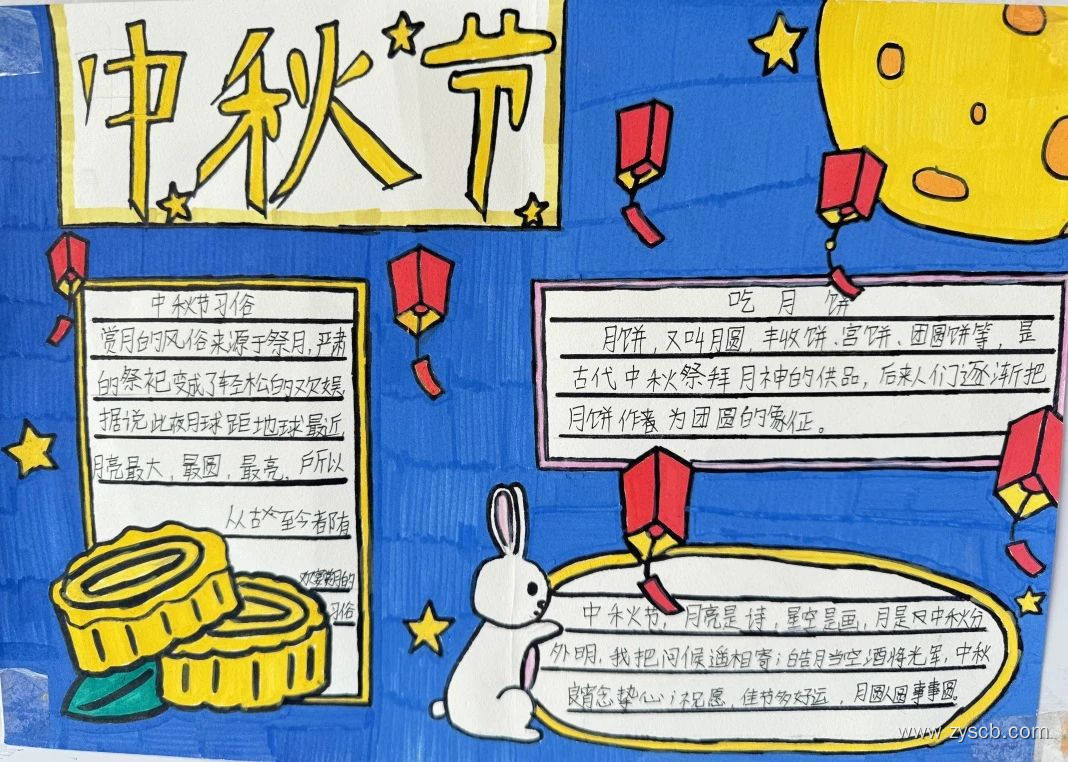 中秋节
中秋节习俗
赏月的风俗来源于祭月,严肃
的祭祀变成了轻松的欢娱
据说此夜月球距地球最近
月亮最大,最圆,最亮,所以
从古至今都有
习俗
吃月饼
月饼,又叫月圆,丰收饼、宫饼、团圆饼等,是
古代中秋祭拜月神的供品,后来人们逐渐把
月饼作为团圆的象征。
中秋节,月亮是诗,星空是画,月是又中秋分
外明,我把问候遥相寄;皓月当空洒将光军,中秋
良宵念挚心;祝愿,佳节多好运,月圆人圆事事圆。
www.zyscb.com